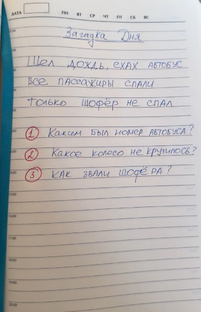 ДАТА ПН ВТ СР ЧТ ПТ СБ ВС
Загадка Дня
Шёл дождь, ехал автобус
Все пассажиры спали
Только шофёр не спал
1 Каким был номер автобуса?
2 Какое колесо не крутилось?
3 Как звали шофёра?